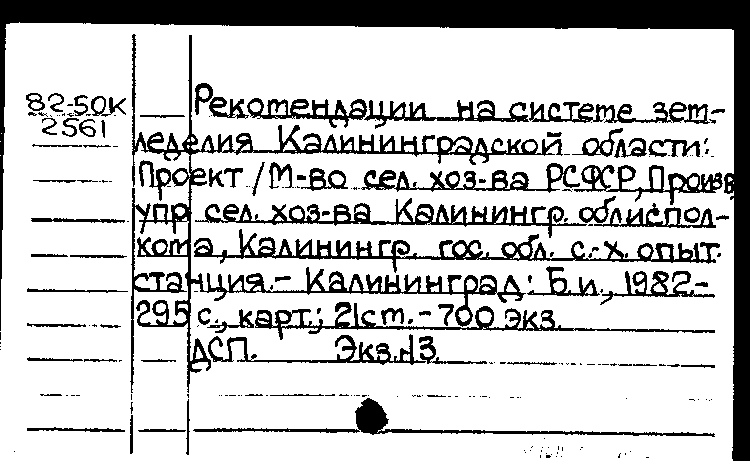 82-50К
2561
Рекомендации на системе зем-
леделия Калининградской области:
Проект / М-во сел. хоз-ва РСФСР, Произв.
упр сел. хоз-ва Калинингр. облиспол-
кома, Калинингр. гос. обл. с.-х. опыт.
станция.- Калининград: Б.и., 1982.-
295 с., карт.; 21 cm. - 700 экз.
ДСП. Экз.